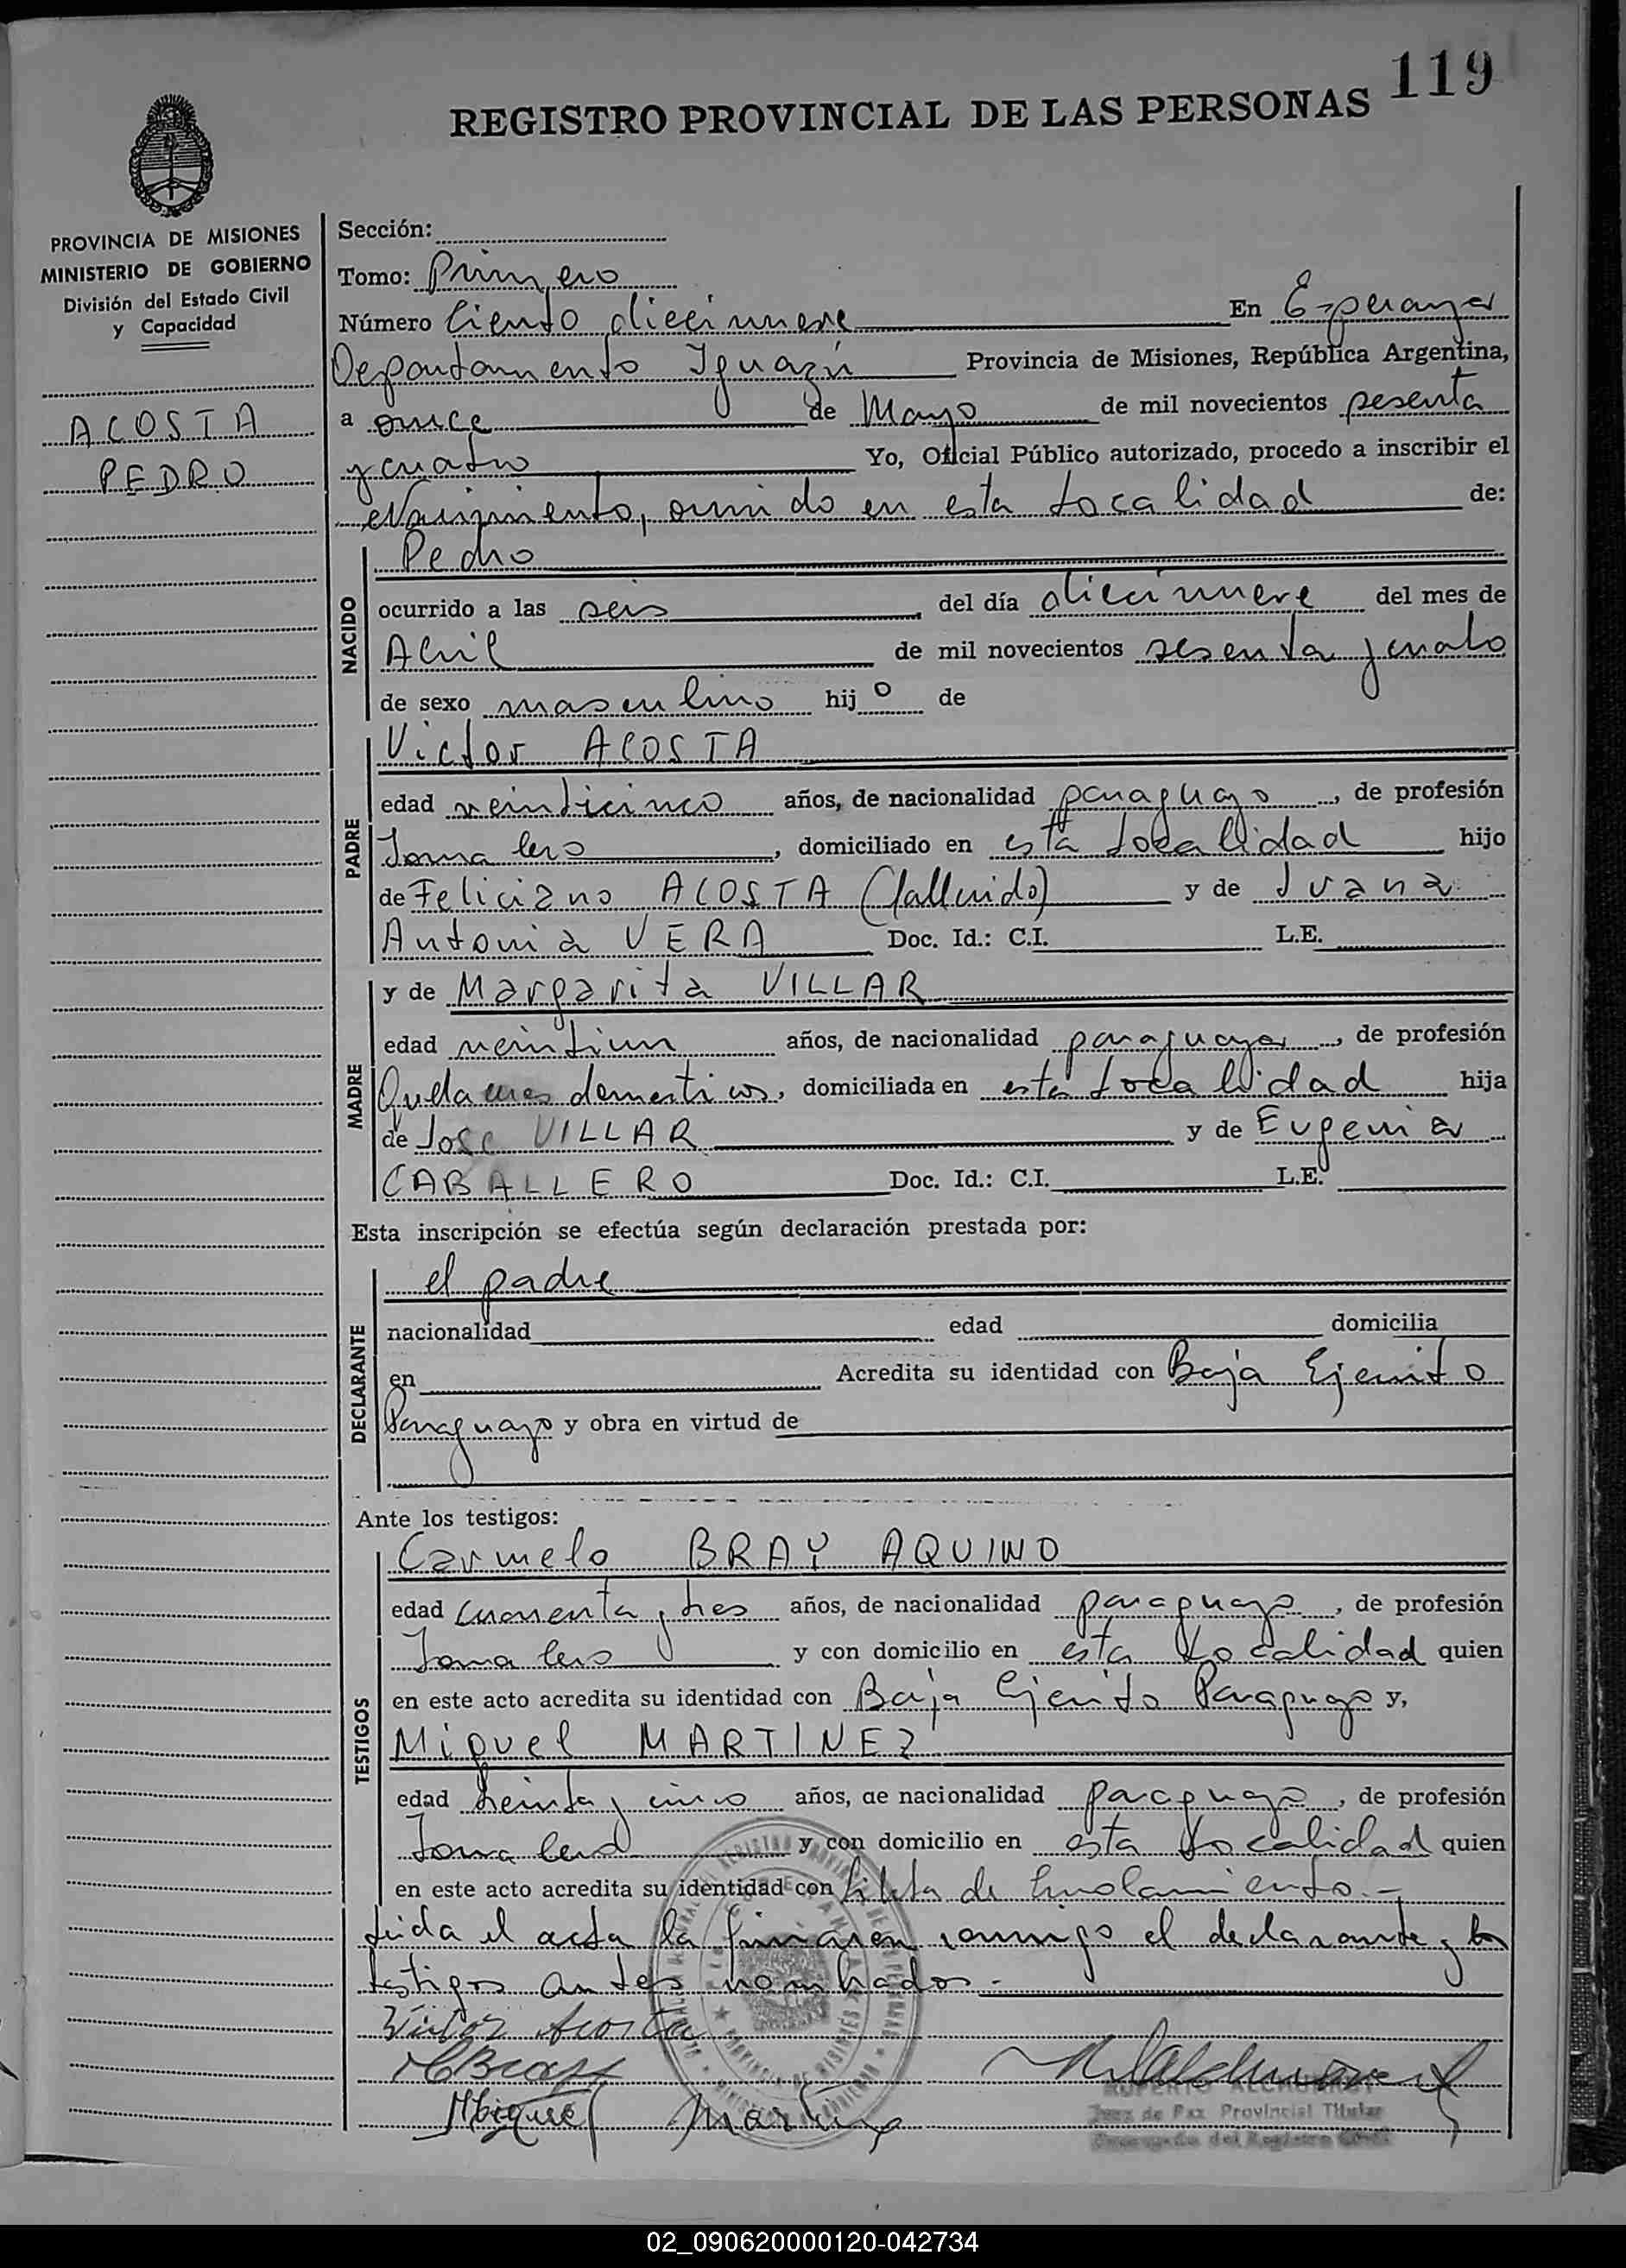 119
REGISTRO PROVINCIAL DE LAS PERSONAS
PROVINCIA DE MISIONES
MINISTERIO DE GOBIERNO
División del Estado Civil
y Capacidad
ACOSTA
PEDRO
Sección:
Tomo: Primero
Número Ciento diecinueve En Esperanza
Departamento Iguazú Provincia de Misiones, República Argentina,
a once de Mayo de mil novecientos sesenta
y cuatro Yo, Oficial Público autorizado, procedo a inscribir el
Nacimiento, ocurrido en esta Localidad de:
NACIDO
Pedro
ocurrido a las seis del día diecinueve del mes de
Abril de mil novecientos sesenta y cuatro
de sexo masculino hijo de
PADRE
Victor ACOSTA
edad veinticinco años, de nacionalidad paraguayo, de profesión
Jornalero, domiciliado en esta Localidad hijo
de Feliciano ACOSTA (fallecido) y de Juana
Antonia VERA Doc. Id.: C.I. L.E.
MADRE
y de Margarita VILLAR
edad veintiun años, de nacionalidad paraguaya, de profesión
Quehaceres domesticos, domiciliada en esta Localidad hija
de Jose VILLAR y de Eugenia
CABALLERO Doc. Id.: C.I. L.E.
Esta inscripción se efectúa según declaración prestada por:
DECLARANTE
el padre
nacionalidad edad domicilia
en Acredita su identidad con Baja Ejercito
Paraguayo y obra en virtud de
Ante los testigos:
TESTIGOS
Carmelo BRAY AQUINO
edad cuarenta y tres años, de nacionalidad paraguayo, de profesión
Jornalero y con domicilio en esta Localidad quien
en este acto acredita su identidad con Baja Ejercito Paraguayo y,
Miguel MARTINEZ
edad treinta y cinco años, de nacionalidad paraguayo, de profesión
Jornalero y con domicilio en esta Localidad quien
en este acto acredita su identidad con Libreta de Enrolamiento.-
Leida el acta la firmaron conmigo el declarante y los
testigos antes nombrados.-
Victor Acosta
CBray
Miguel Martinez
Juez de Paz Provincial Titular
Encargado del Registro Civil
02_090620000120-042734